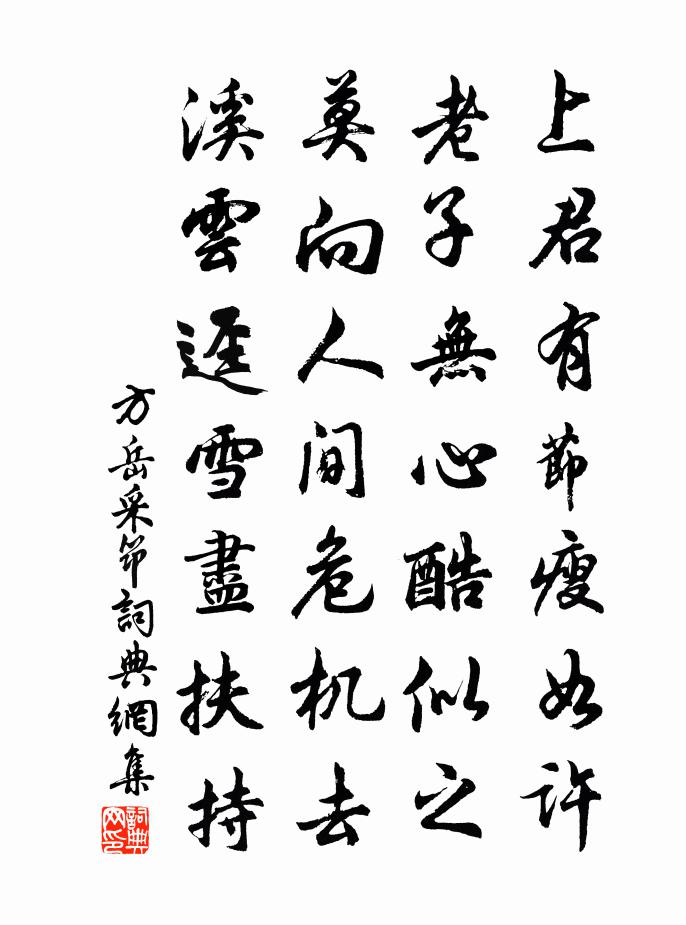 上君有節瘦如許
老子無心酷似之
莫向人間危机去
溪雲逕雪盡扶持
方岳采筇詞典網集
詞典网印